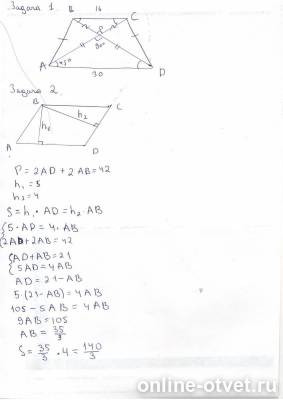 Задача 1.
B 16 C
P
90°
A 45° D
30
Задача 2
B C
h₁ h₂
A D
P = 2AD + 2AB = 42
h₁ = 5
h₂ = 4
S = h₁ · AD = h₂ AB
{ 5 · AD = 4 · AB
{ 2AD + 2AB = 42
{ AD + AB = 21
{ 5AD = 4AB
AD = 21 - AB
5 · (21 - AB) = 4AB
105 - 5AB = 4AB
9AB = 105
AB = 35/3
S = 35/3 · 4 = 140/3
online-otvet.ru